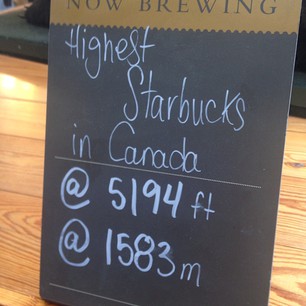 NOW BREWING
Highest
Starbucks
in Canada
@ 5194 ft
@ 1583 m